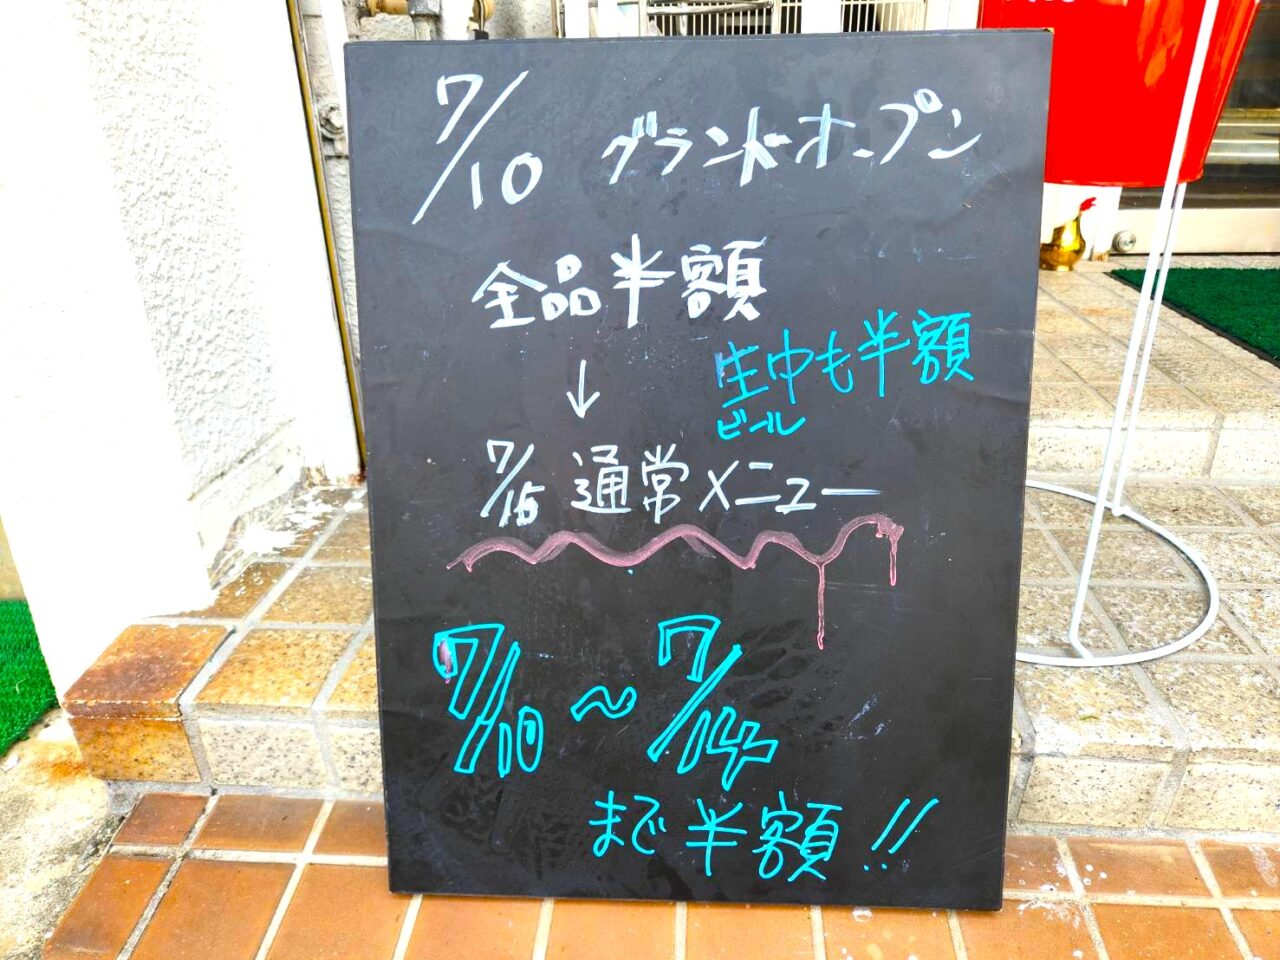 7/10 グランドオープン
全品半額
↓
生中も半額
ビール
7/15 通常メニュー
7/10～7/14
まで半額!!